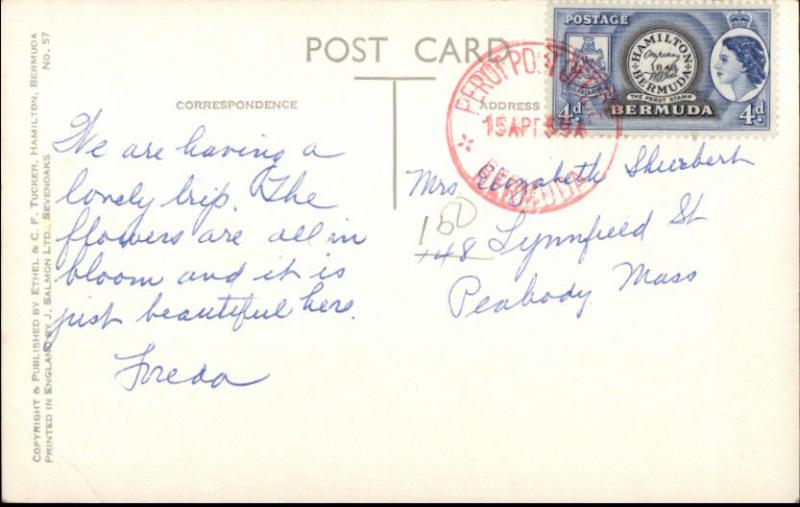 COPYRIGHT & PUBLISHED BY ETHEL & C. F. TUCKER, HAMILTON, BERMUDA
PRINTED IN ENGLAND BY J. SALMON LTD., SEVENOAKS
No. 57
POST CARD
CORRESPONDENCE
ADDRESS
We are having a
lovely trip. The
flowers are all in
bloom and it is
just beautiful here.
Freda
POSTAGE
HAMILTON
BERMUDA
1848
THE PEROT STAMP
4d BERMUDA 4d
PEROT POST OFFICE
15 APR 59
BERMUDA
Mrs. Elizabeth Shurbert
150
148 Lynnfield St
Peabody Mass